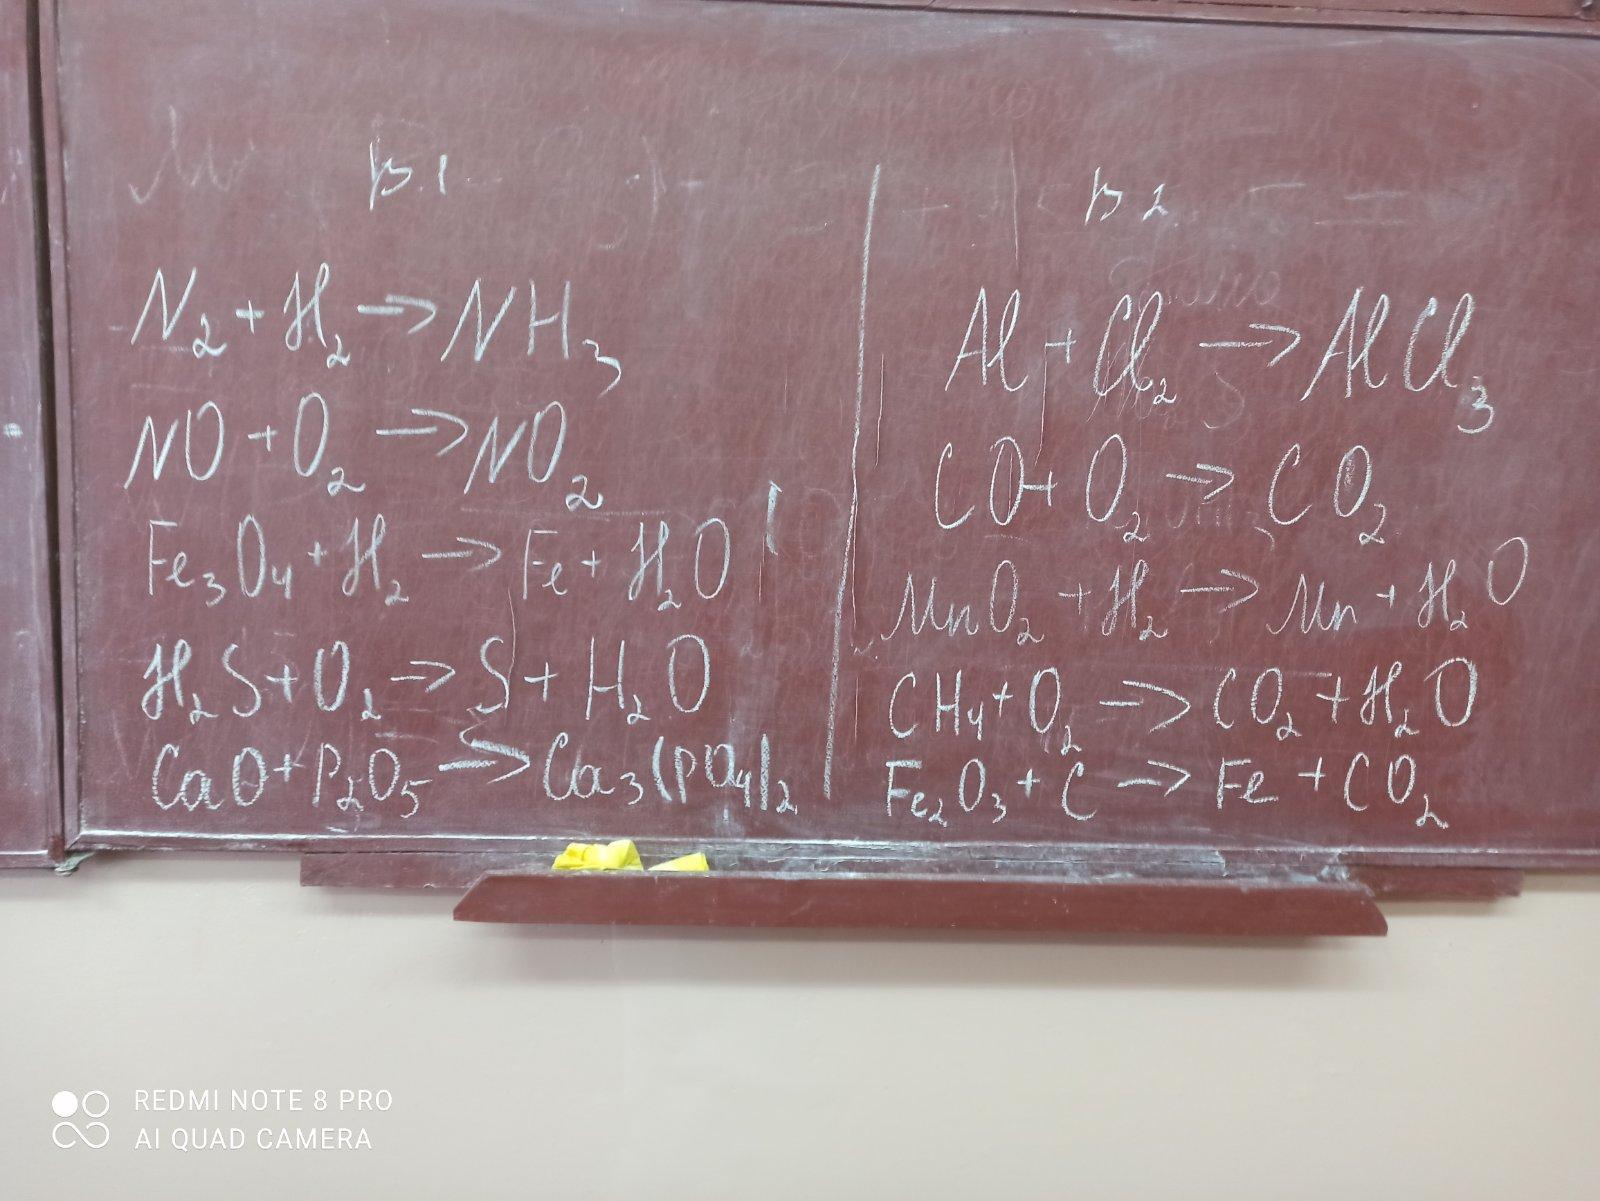 В.1
N₂ + H₂ → NH₃
NO + O₂ → NO₂
Fe₃O₄ + H₂ → Fe + H₂O
H₂S + O₂ → S + H₂O
CaO + P₂O₅ → Ca₃(PO₄)₂
В 2.
Al + Cl₂ → AlCl₃
CO + O₂ → CO₂
MnO₂ + H₂ → Mn + H₂O
CH₄ + O₂ → CO₂ + H₂O
Fe₂O₃ + C → Fe + CO₂
REDMI NOTE 8 PRO
AI QUAD CAMERA